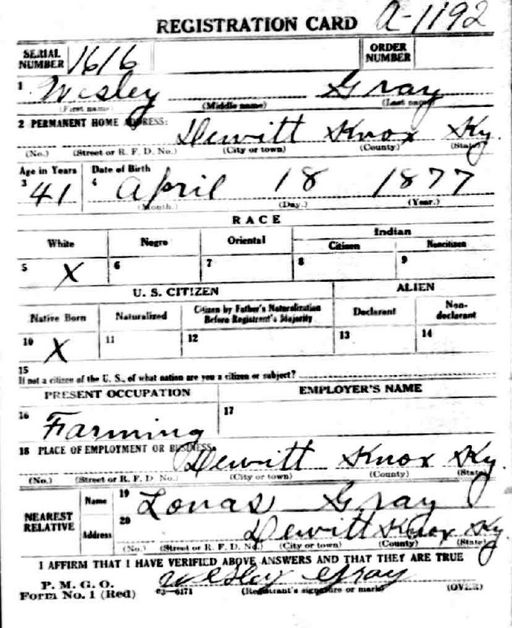 REGISTRATION CARD A-1192
SERIAL NUMBER 1616 ORDER NUMBER
1 Wesley Gray
(First name) (Middle name) (Last name)
2 PERMANENT HOME ADDRESS: Dewitt Knox Ky.
(No.) (Street or R. F. D. No.) (City or town) (County) (State)
Age in Years Date of Birth
3 41 4 April 18 1877
(Month.) (Day.) (Year.)
RACE
White Negro Oriental Indian
Citizen Noncitizen
5 X 6 7 8 9
U. S. CITIZEN ALIEN
Native Born Naturalized Citizen by Father's Naturalization Before Registrant's Majority Declarant Non-declarant
10 X 11 12 13 14
15
If not a citizen of the U. S., of what nation are you a citizen or subject?
PRESENT OCCUPATION EMPLOYER'S NAME
16 Farming 17
18 PLACE OF EMPLOYMENT OR BUSINESS: Dewitt Knox Ky.
(No.) (Street or R. F. D. No.) (City or town) (County) (State)
NEAREST RELATIVE Name 19 Lonas Gray
Address 20 Dewitt Knox Ky.
(No.) (Street or R. F. D. No.) (City or town) (County) (State)
I AFFIRM THAT I HAVE VERIFIED ABOVE ANSWERS AND THAT THEY ARE TRUE
P. M. G. O. Wesley Gray
Form No. 1 (Red) 03-6171 (Registrant's signature or mark) (OVER)